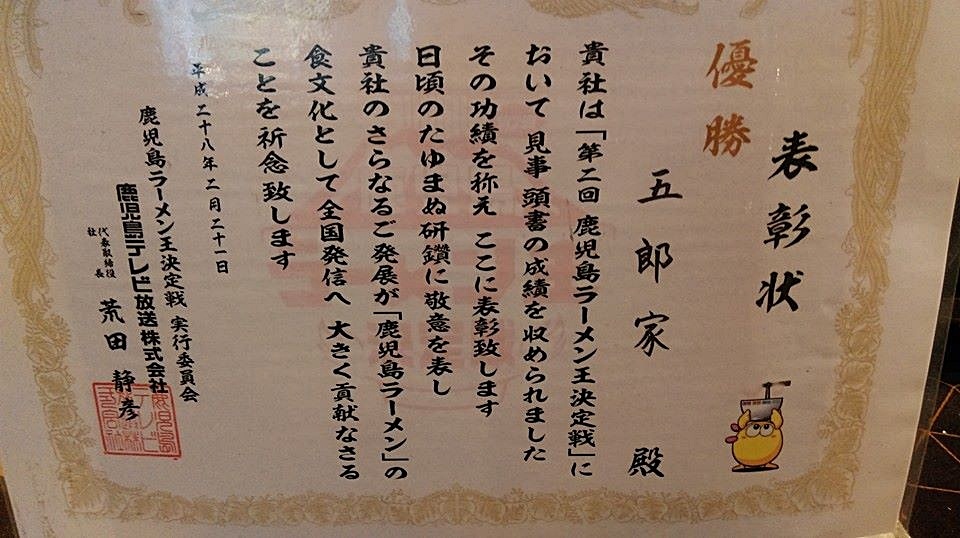 表彰状
優勝
五郎家 殿
貴社は「第二回 鹿児島ラーメン王決定戦」に
おいて 見事 頭書の成績を収められました
その功績を称え ここに表彰致します
日頃のたゆまぬ研鑽に敬意を表し
貴社のさらなるご発展が「鹿児島ラーメン」の
食文化として全国発信へ 大きく貢献なさる
ことを祈念致します
平成二十八年二月二十一日
鹿児島ラーメン王決定戦 実行委員会
鹿児島テレビ放送株式会社
代表取締役
社長 荒田 静彦